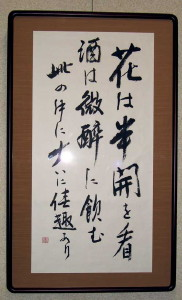 花は半開を看
酒は微醉に飲む
此の中に大いに佳趣あり